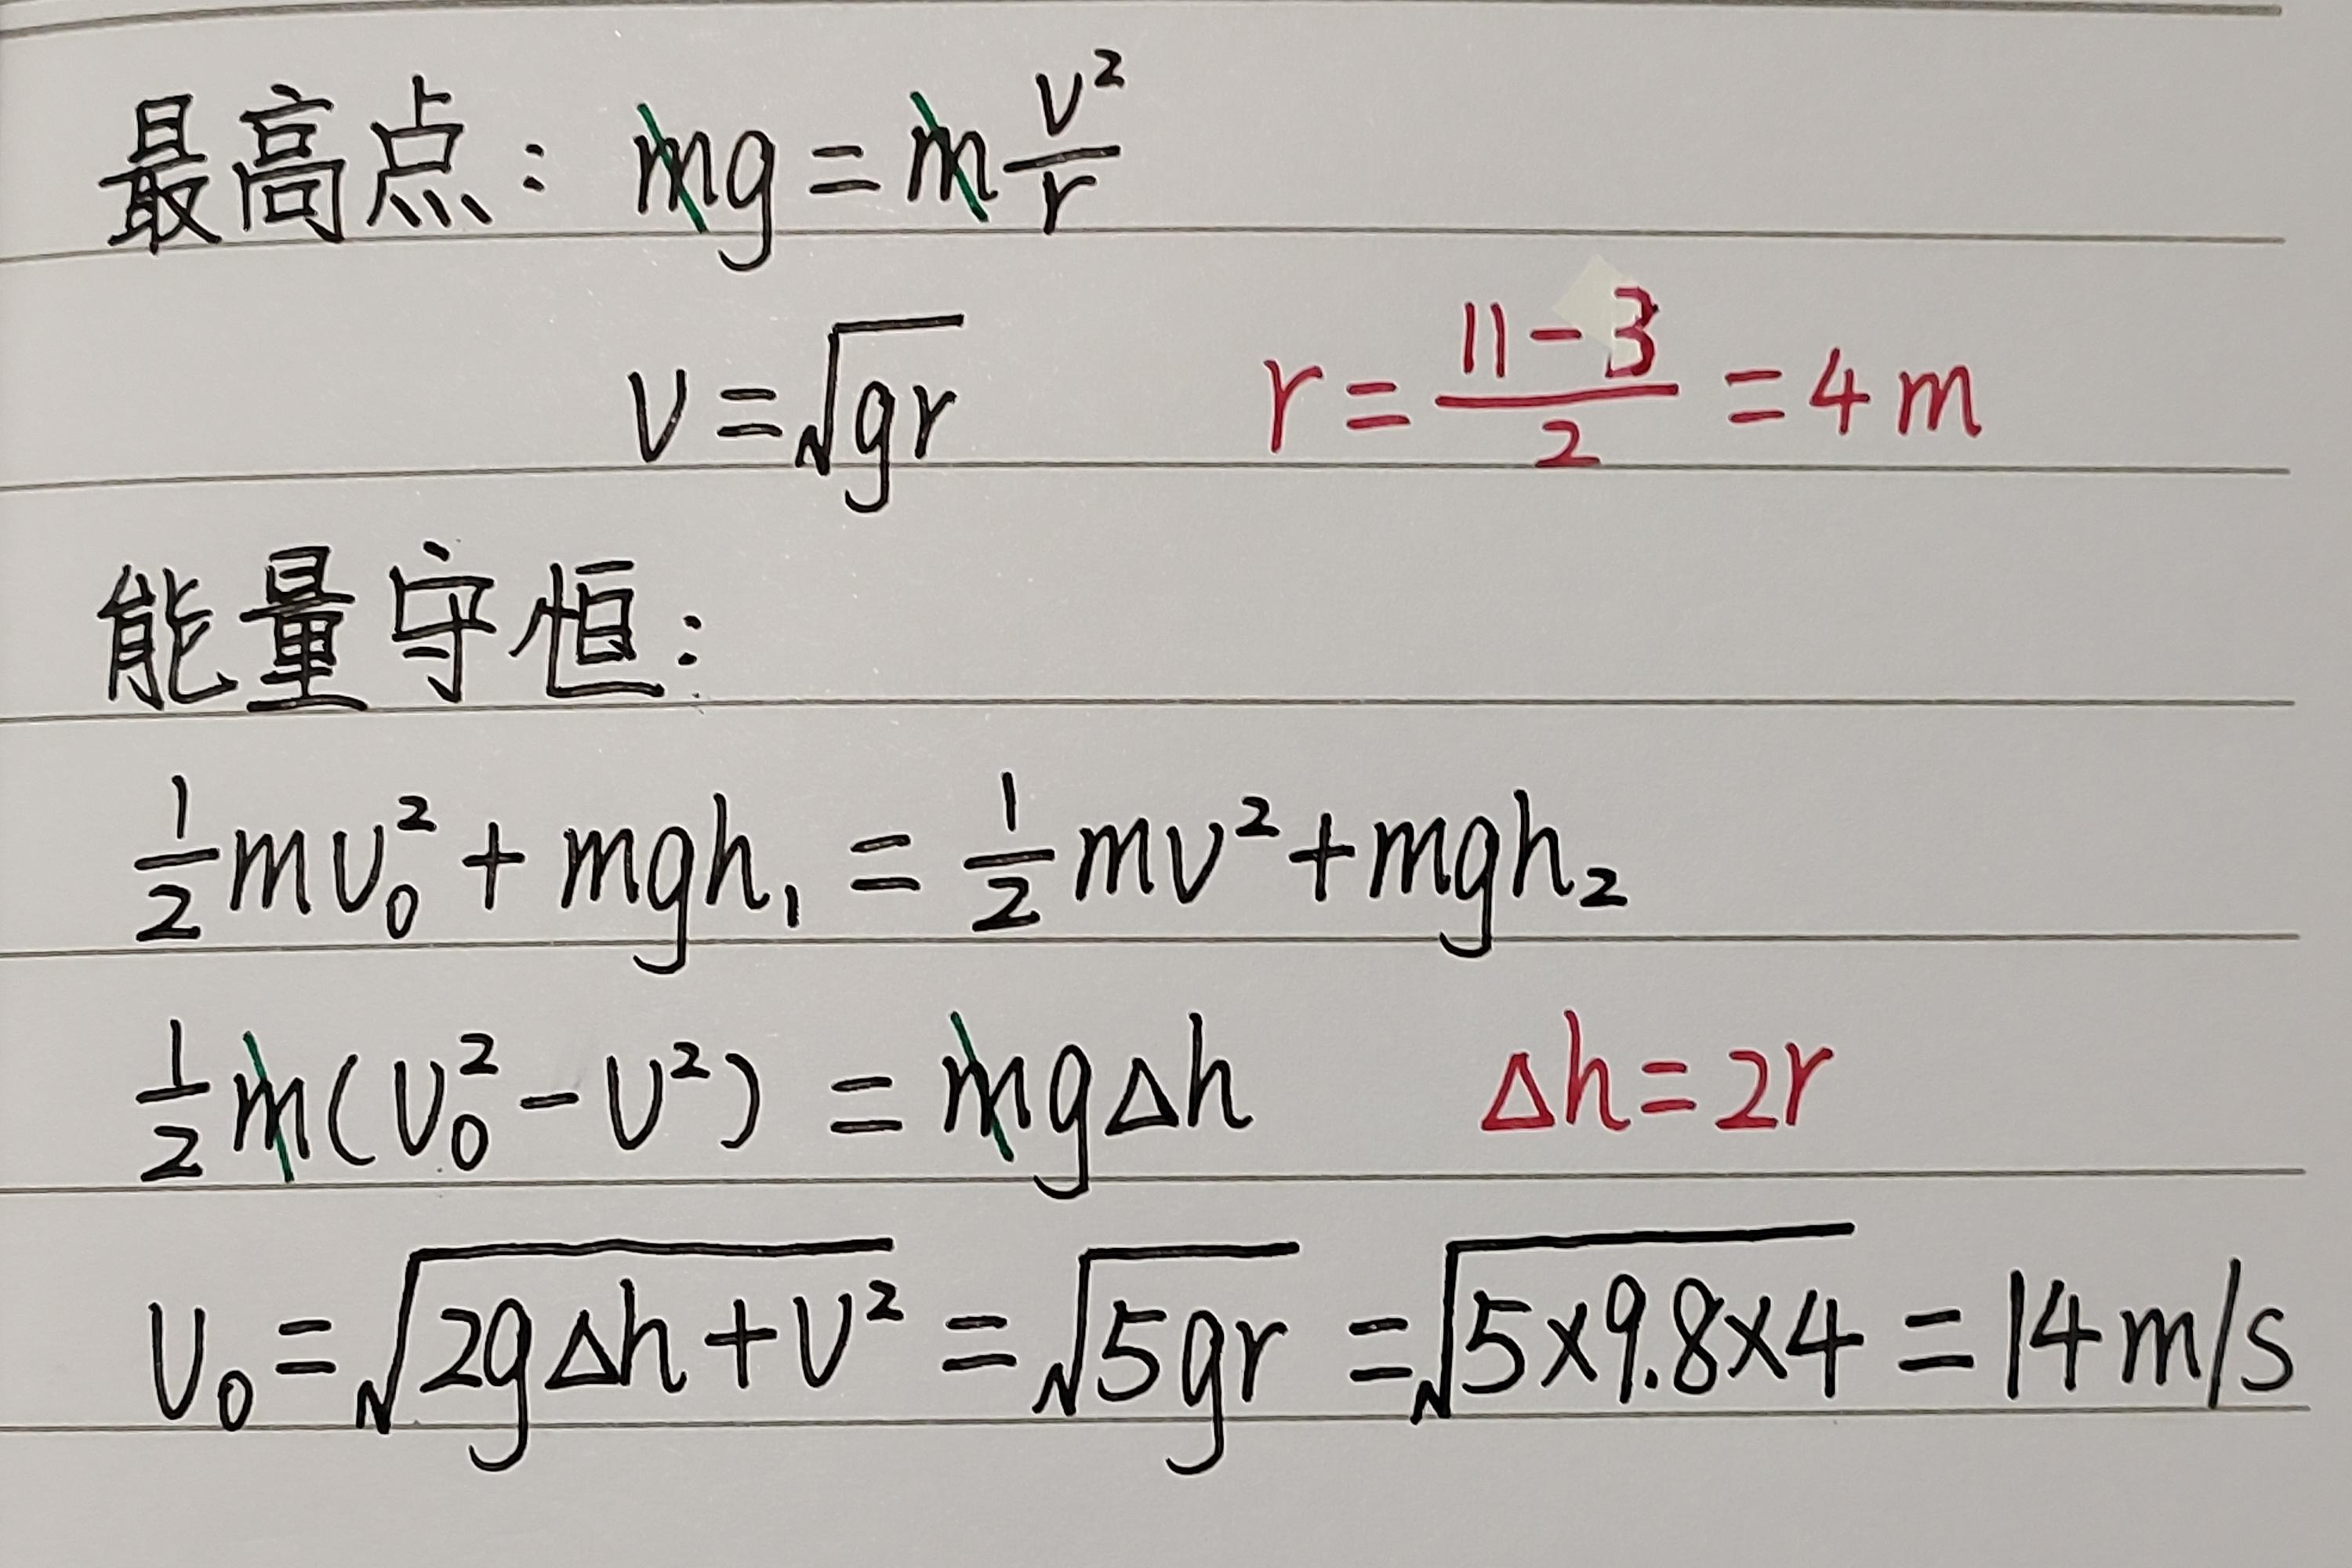 最高点: mg = m v²/r
v = √(gr) r = (11-3)/2 = 4m
能量守恒:
1/2 mv₀² + mgh₁ = 1/2 mv² + mgh₂
1/2 m(v₀² - v²) = mgΔh Δh = 2r
v₀ = √(2gΔh + v²) = √(5gr) = √(5×9.8×4) = 14m/s